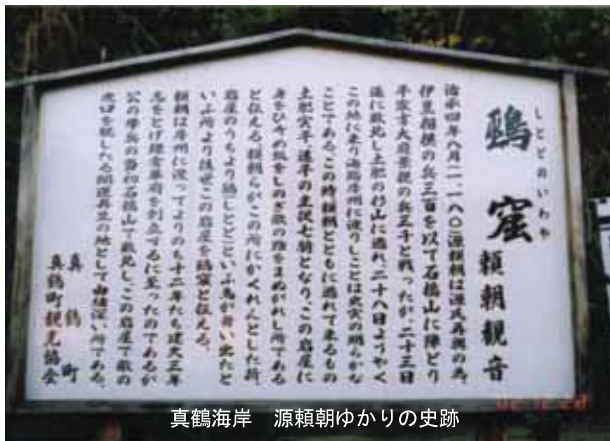 しとどのいわや
鵐窟 頼朝観音
治承四年八月(一一八〇)源頼朝は源氏再興の為、
伊豆相模の兵三百を以て石橋山に陣どり
平家方大庭景親の兵三千と戦ったが、二十三日
遂に敗北し土肥の杉山に逃れ、二十八日ようやく
この地に来り海路房州に渡りしことは史実の明らかな
ことである。この時頼朝とともに逃れて来るもの
土肥実平、遂平の主従七騎となり、この岩屋に
身をひそめ敵をしのぎ敵の難をまぬがれし所である
と伝える。頼朝らがこの所にかくれんとした折、
岩屋のうちより鵐(しとど)という鳥が舞い出たと
いふ所より後世この岩屋を鵐窟と伝える。
頼朝は房州に渡ってよりのち十二年たち建久三年
志をとげ鎌倉幕府を創立するに至ったのであるが
公の挙兵の当初石橋山で敗北し、この岩屋で敵の
虎口を脱したる開運再生の地として由緒深い所である。
真鶴町
真鶴町観光協会
真鶴海岸 源頼朝ゆかりの史跡